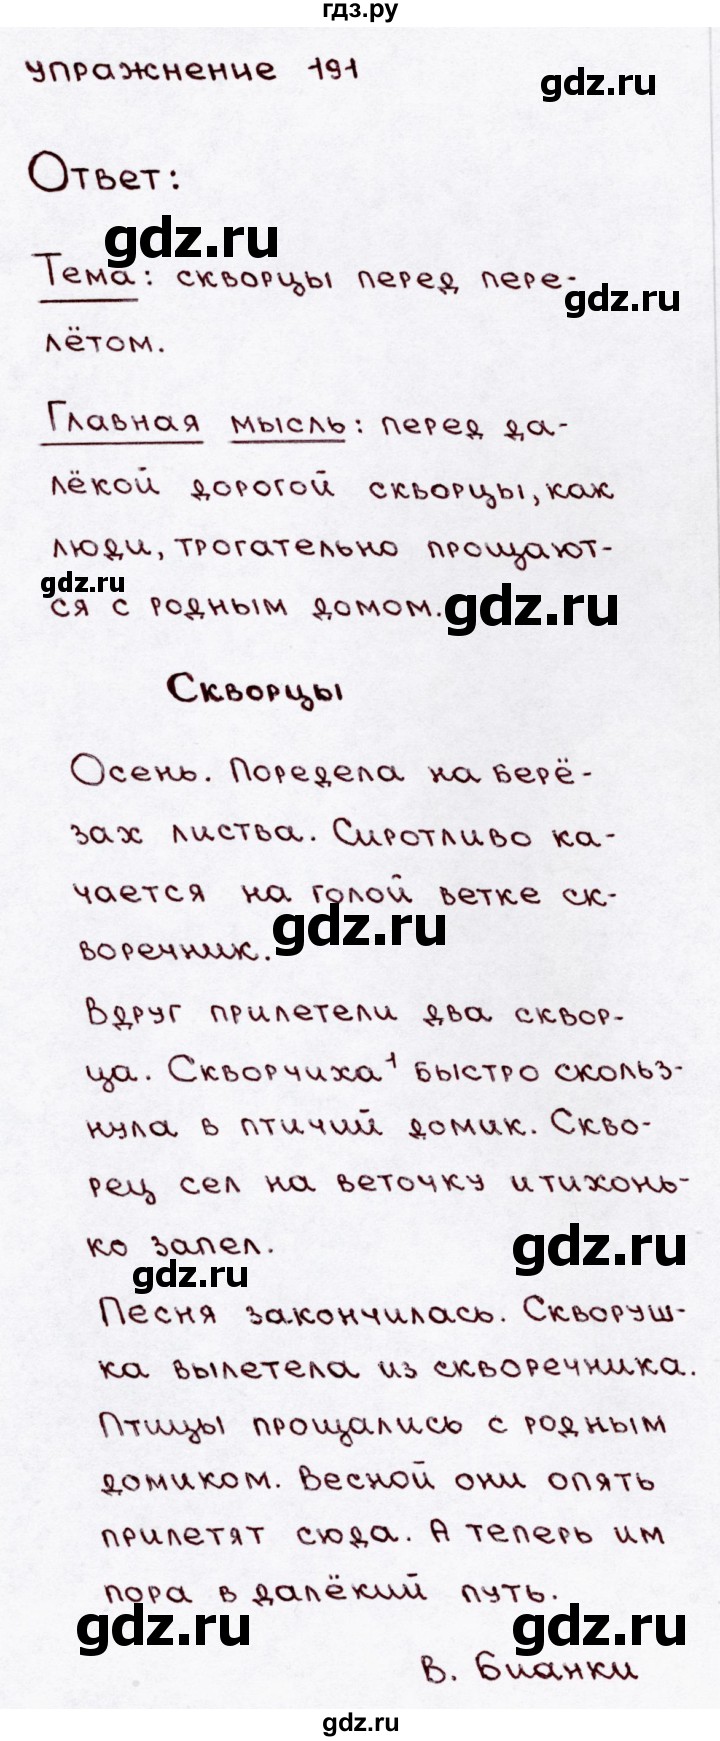 гдз.ру
упражнение 191
gdz.ru
Ответ:
gdz.ru
Тема: скворцы перед пере-
gdz.ru
лётом.
Главная мысль: перед да-
лёкой дорогой скворцы, как
люди, трогательно прощают-
gdz.ru
ся с родным домом.
gdz.ru
Скворцы
Осень. Поредела на берё-
зах листва. Сиротливо ка-
чается на голой ветке ск-
gdz.ru
воречник.
Вдруг прилетели два сквор-
ца. Скворчиха¹ быстро скольз-
нула в птичий домик. Скво-
рец сел на веточку и тихонь-
ко запел.
gdz.ru
gdz.ru
Песня закончилась. Скворуш-
ка вылетела из скворечника.
Птицы прощались с родным
домиком. Весной они опять
прилетят сюда. А теперь им
пора в далёкий путь.
gdz.ru
gdz.ru
В. Бианки
gdz.ru